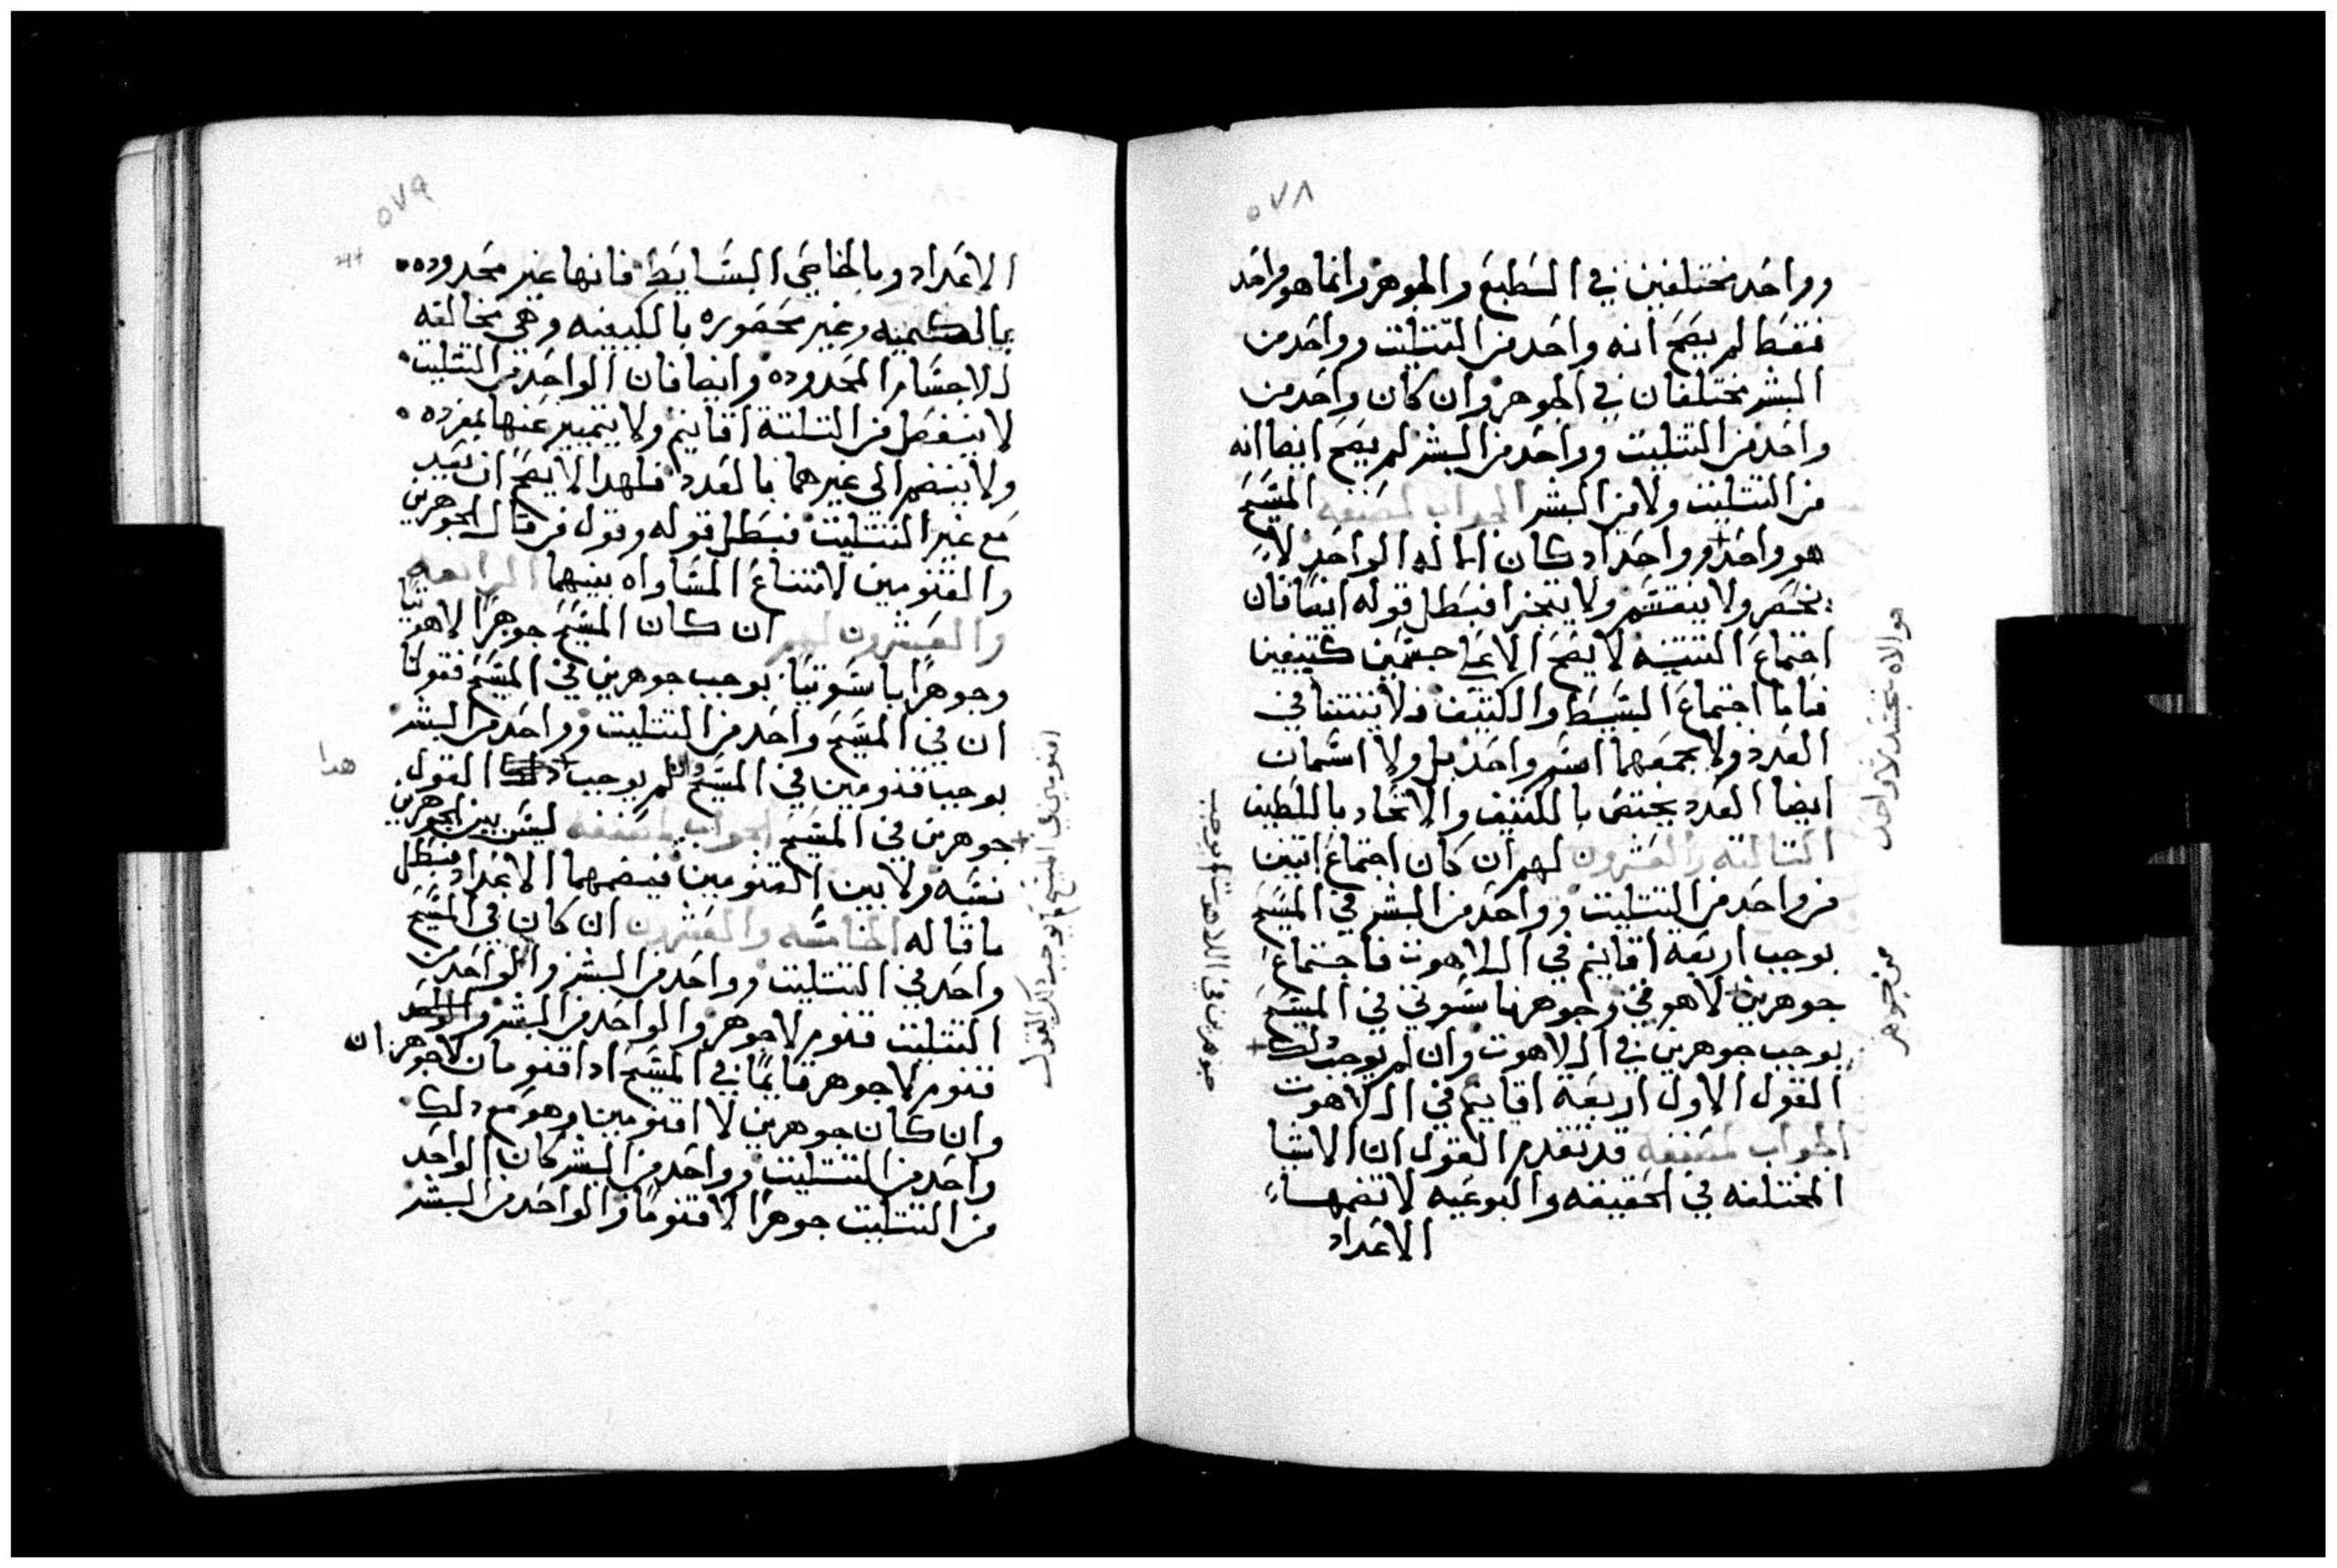 ٥٧٨
وواحد مختلفين في الطبع والجوهر وانما هو واحد
فقط لم يصح انه واحد من التثليث وواحد من
البشر مختلفان في الجوهر وان كان واحد من
واحد من التثليت وواحد من البشر لم يصح ايضا انه
من التثليت ولا من البشر الجواب لمصنفه المسيح
هو واحد وواحد اد كان الاله الواحد لا
ينحصر ولا ينقسم ولا يتجزا فبطل قوله ايضا فان
اجتماع التثنيه لا يصح الا على جسمين كثيفين
فاما اجتماع البسيط والكثيف فلا يتثنا في
العدد ولا يجمعهما اسم واحد بل ولا اسمان
ايضا العدد يختص بالكثيف والاتحاد باللطيف
التالته والعشرون لهم ان كان اجتماع اتنين
من واحد من التثليت وواحد من البشر في المسيح
يوجب اربعه اقانيم في اللاهوت فاجتماع
جوهرين لاهوتي وجوهر ناسوتي في المسيح
يوجب جوهرين في اللاهوت وان لم يوجب دلك
القول الاول اربعة اقانيم في اللاهوت
الجواب لمصنفه قد تقدم القول ان الاشيا
المختلفه في الحقيقه والنوعيه لا تضمها
الاعداد
هو الاه متجسد لا واحد
من جوهر
جوهرين في اللاهوت لم يوجب
٥٧٩
الاعداد وبالخاصي البسايط فانها غير محدوده
بالكميه وغير محصوره بالكيفيه وهي مخالفه
للاجسام المحدوده وايضا فان الواحد من التثليت
لا ينفصل من التلتة اقانيم ولا يتميز عنها بمفرده
ولا ينضم الى غيرهما بالعدد فلهدا لا يصح ان يعد
مع غير التثليت فبطل قوله وقول من قال بالجوهرين
والقنومين لامتناع المساواه بينهما الرابعه
والعشرون لهم ان كان المسيح جوهرًا لاهوتيًا
وجوهرًا ناسوتيًا يوجب جوهرين في المسيح فقولنا
ان في المسيح واحد من التثليت وواحد من البشر
يوجب قنومين في المسيح وان لم يوجب دلك القول
جوهرين في المسيح الجواب لمصنفه ليس بين الجوهرين
نسبه ولا بين القنومين فيضمهما الاعداد فبطل
ما قاله الخامسه والعشرون ان كان في المسيح
واحد من التثليت وواحد من البشر والواحد من
التثليت قنوم لا جوهر والواحد من البشر
قنوم لا جوهر قايمًا في المسيح ادا قنومان لا جوهران
وان كان جوهرين لا اقنومين وهو مع دلك
واحد من التثليت وواحد من البشر كان الواحد
من التثليت جوهرًا لا قنومًا والواحد من البشر
هدا
اقنومين في المسيح لم يوجب دلك القول